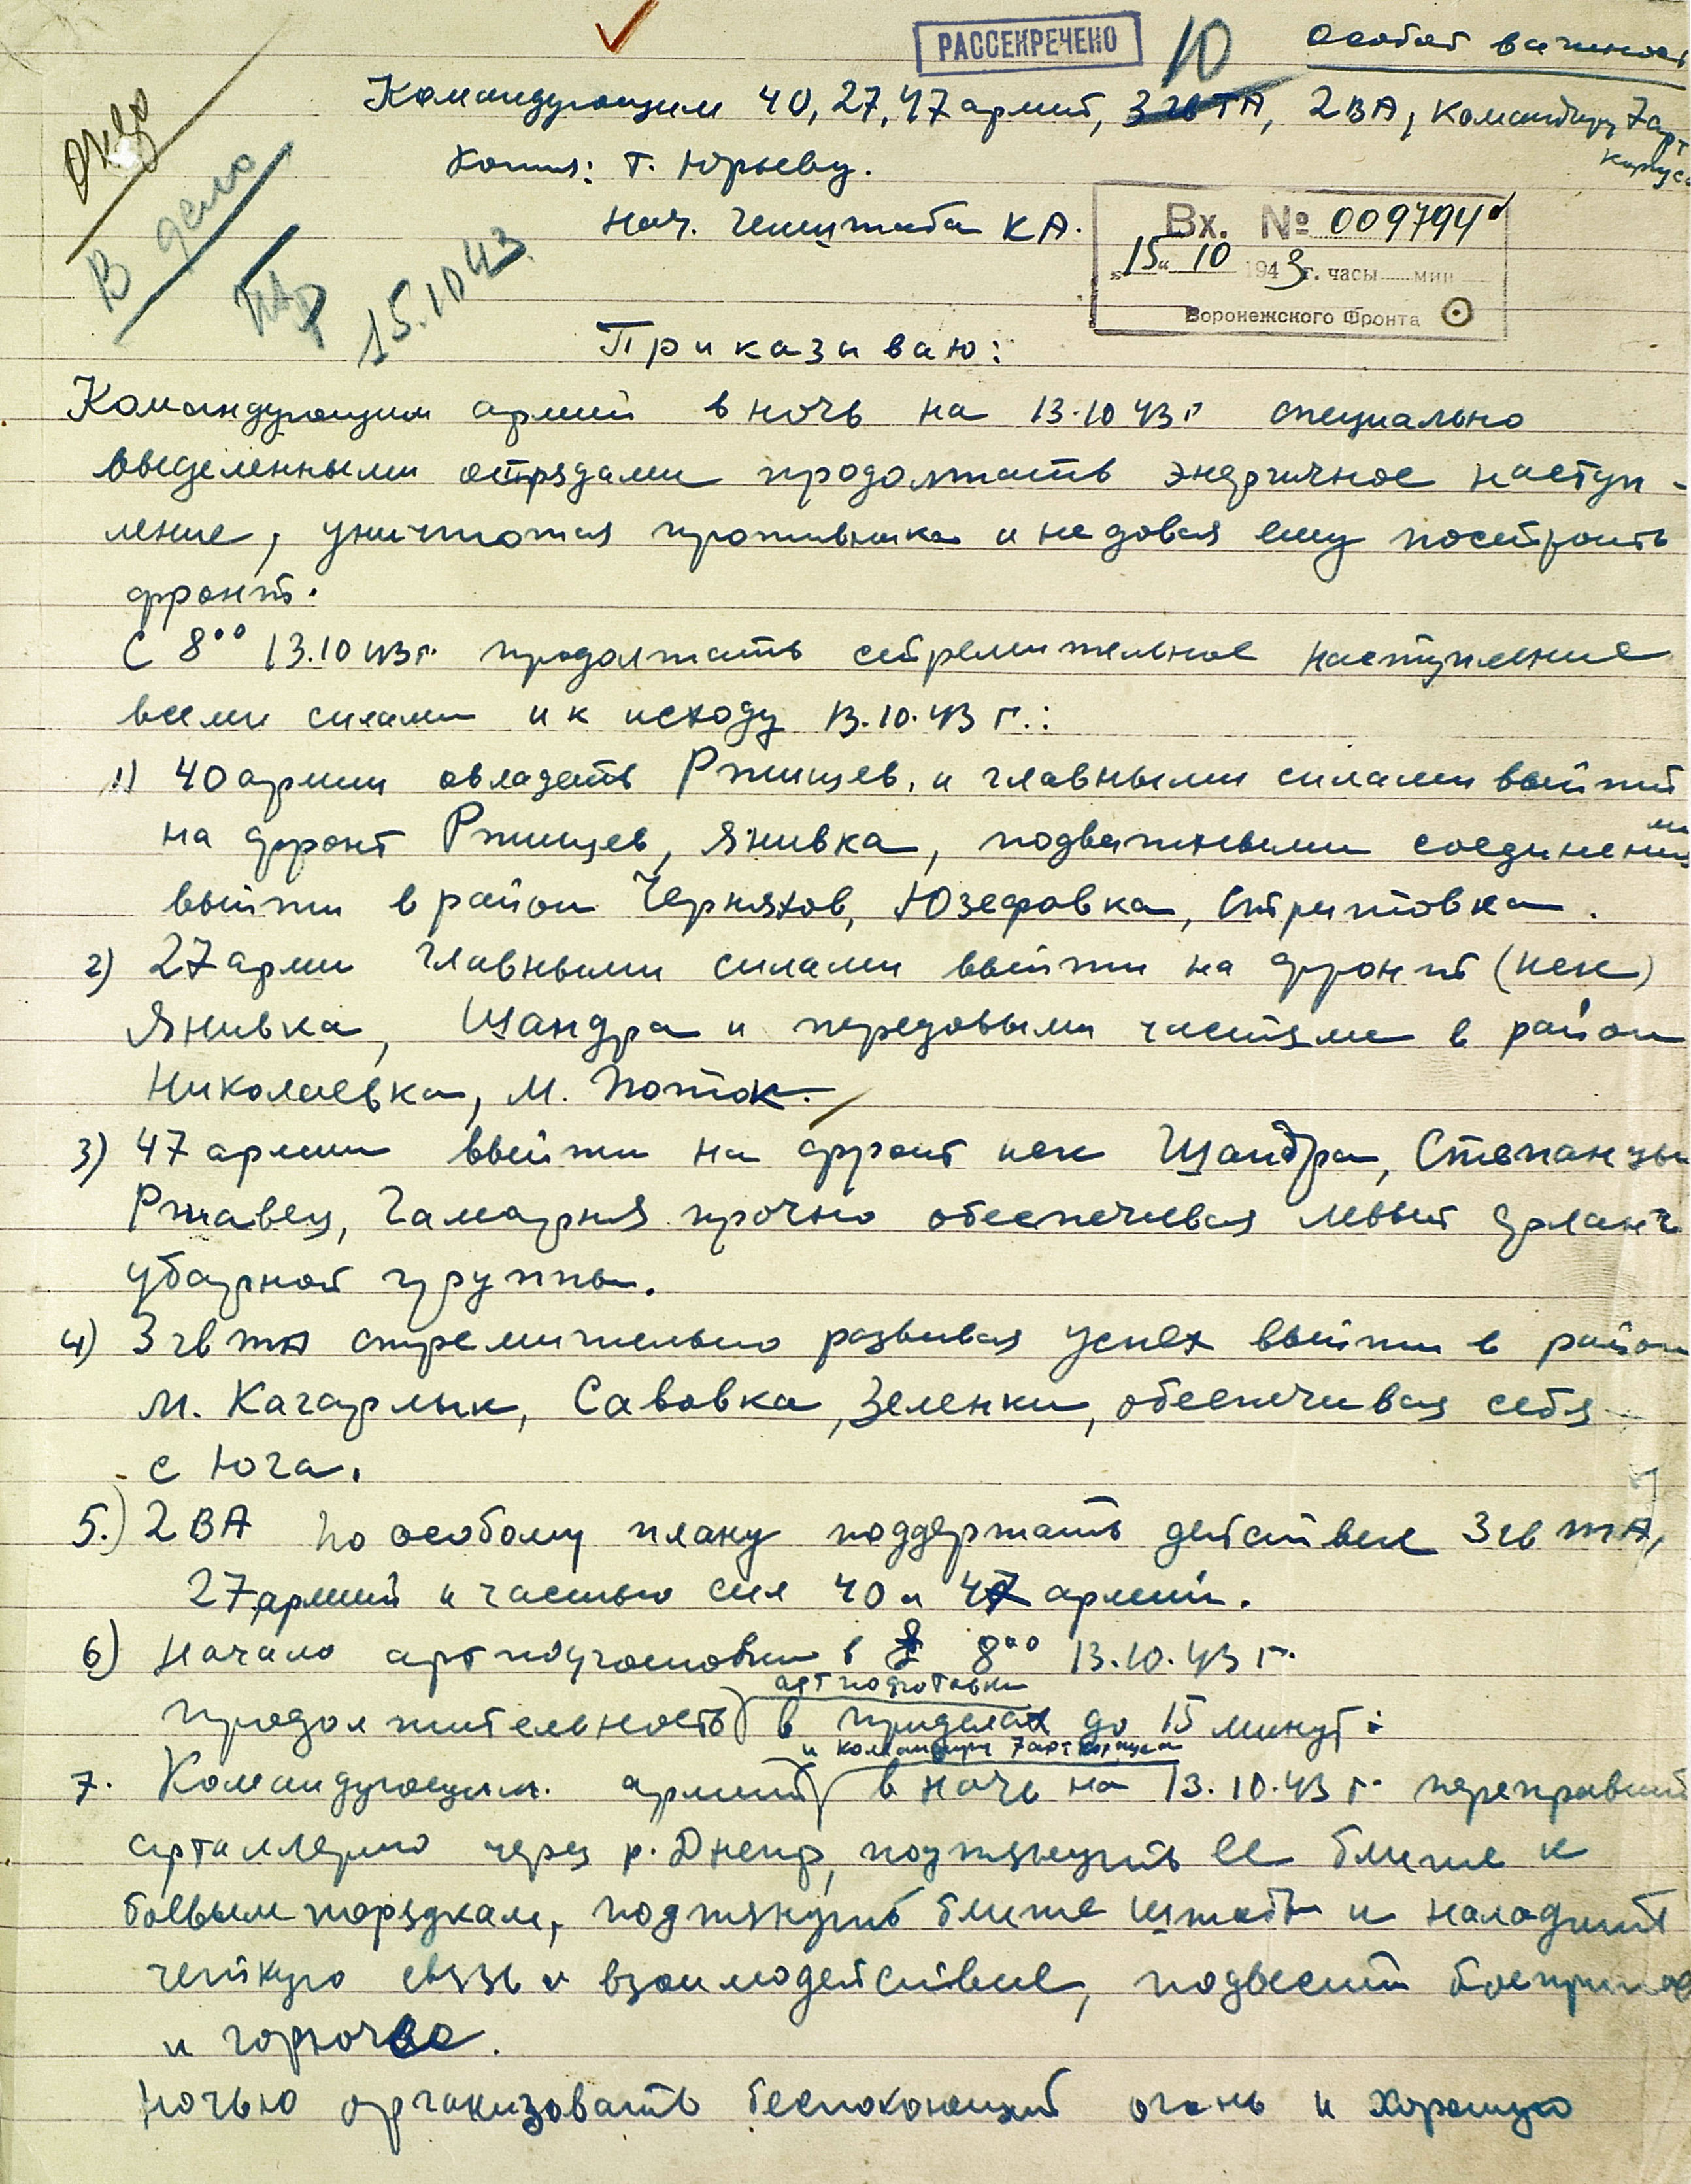 РАССЕКРЕЧЕНО
10
особой важност
Командующим 40, 27, 47 армий, 3 гв ТА, 2 ВА, командиру 7 арт
корпуса
Копия: т. Юрьеву.
Нач. Генштаба КА.
В дело
15.10 43
Вх. № 009794
"15" 10 1943 г. часы мин
Воронежского Фронта
Приказываю:
Командующим армий в ночь на 13.10 43 г специально
выделенными отрядами продолжать энергичное наступ-
ление, уничтожая противника и не давая ему построить
фронт.
С 8⁰⁰ 13.10 43 г. продолжать стремительное наступление
всеми силами и к исходу 13.10.43 г.:
1) 40 армии овладеть Ржищев, и главными силами выйти
на фронт Ржищев, Янивка, подвижными соединения
ми
выйти в район Черняхов, Юзефовка, Стритовка.
2) 27 арми главными силами выйти на фронт (иск)
Янивка, Шандра и передовыми частями в район
Николаевка, м. Поток.
3) 47 армии выйти на фронт иск Шандра, Степанцы
Ржавец, Гамарня прочно обеспечивая левый фланг
ударной группы.
4) 3 гв тА стремительно развивая успех выйти в район
м. Кагарлык, Савовка, Зеленки, обеспечивая себя
с юга.
5.) 2 ВА по особому плану поддержать действия 3 гв тА,
27 армий и частью сил 40 и 47 армий.
6) Начало артподготовки в 8⁰⁰ 13.10.43 г.
артподготовки
продолжительность в пределах до 15 минут.
и командиру 7 арт корпуса
7. Командующим армий в ночь на 13.10.43 г. переправить
арталлерию через р. Днепр, подтянуть ее ближе к
боевым порядкам, подтянуть ближе штабы и наладить
четкую связь и взаимодействие, подвести боеприпас
и горючее.
Ночью организовать беспокоющий огонь и хорошую